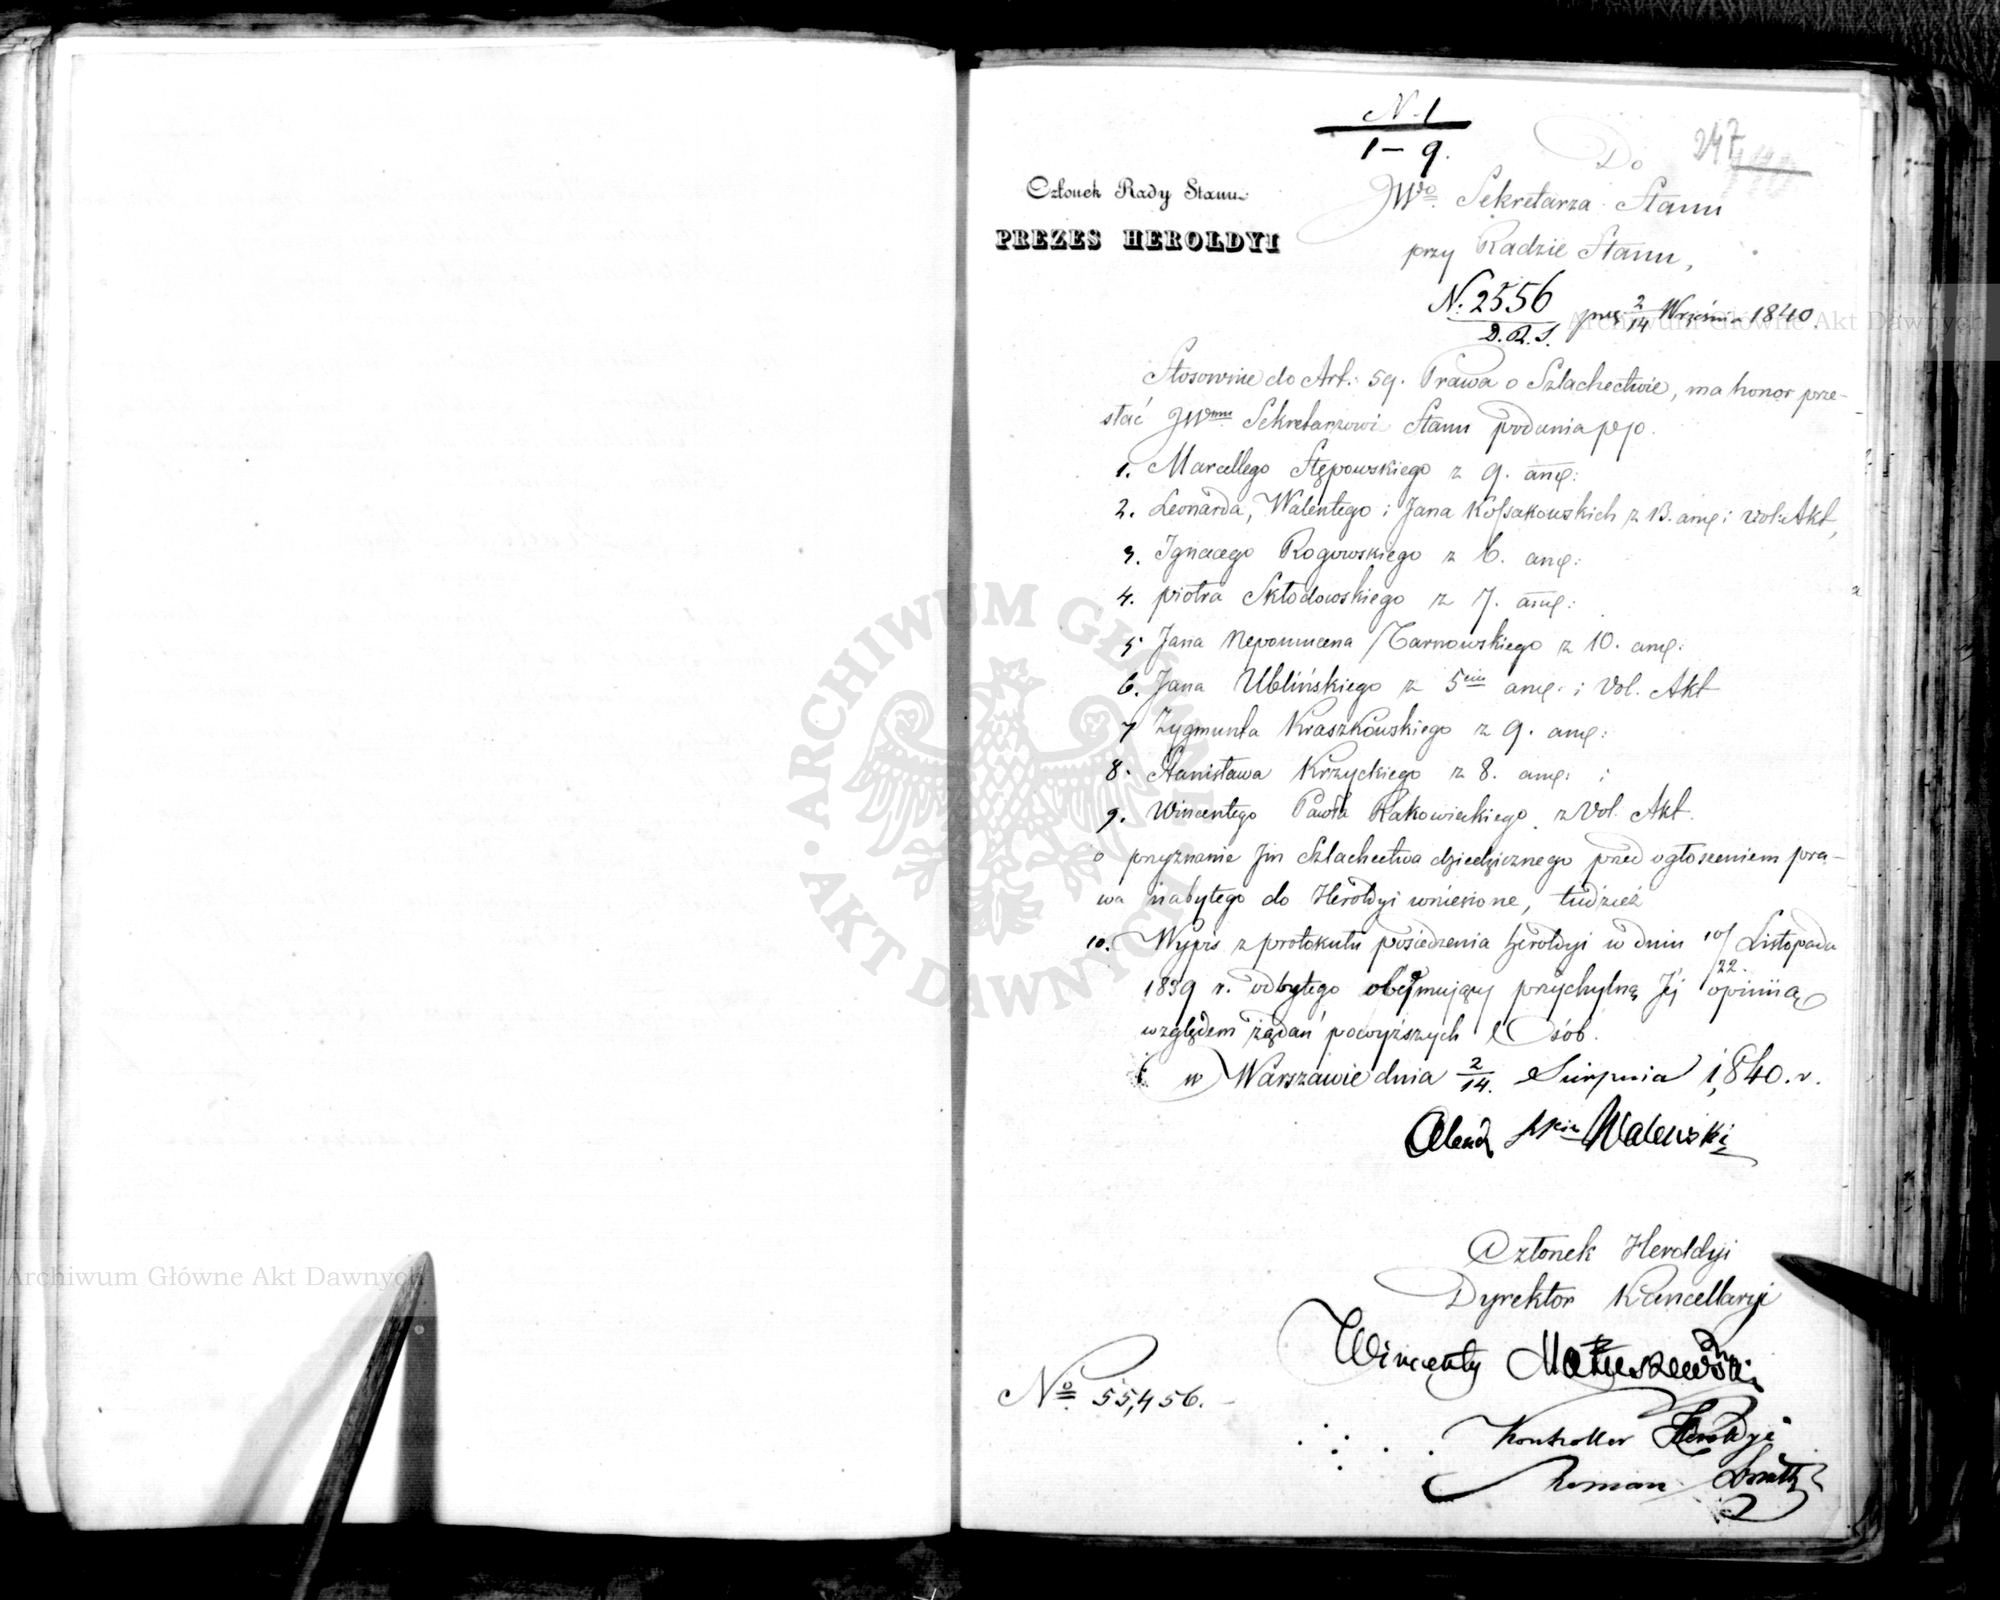 N. 1
1 – 9.
Do
247
Członek Rady Stanu
PREZES HEROLDYI
JWo. Sekretarza Stanu
przy Radzie Stanu,
N. 2556
D.R.S.
2/14 Września 1840.
Stosownie do Art. 59. Prawa o Szlachectwie, ma honor prze-
słać JWmu Sekretarzowi Stanu podania pp.
1. Marcellego Stępowskiego z 9. anę:
2. Leonarda, Walentego i Jana Kossakowskich z 13. anę: i vol: Akt,
3. Ignacego Rogowskiego z 6. anę:
4. piotra Skłodowskiego z 7. anę:
5 Jana Nepomucena Tarnowskiego z 10. anę:
6. Jana Ublińskiego z 5ciu anę: i Vol. Akt
7 Zygmunta Kraszkowskiego z 9. anę:
8. Stanisława Krzyckiego z 8. anę: i
9. Wincentego Pawła Rakowieckiego z Vol. Akt.
o przyznanie Jim Szlachectwa dziedzicznego przed ogłoszeniem pra-
wa nabytego do Heroldyi wniesione, tudzież
10. Wypis z protokułu posiedzenia heroldyi w dniu 10/22. Listopada
1839 r. odbytego obejmujący przychylną Jéj opiniią
względem żądań powyższych Osób.
w Warszawie dnia 2/14. Sierpnia 1840. r.
Walewski
Członek Heroldyi
Dyrektor Kancellaryi
Wincenty Matuszewski
No. 55,456.
Kontroller Heroldyi
Roman
ARCHIWUM GŁÓWNE AKT DAWNYCH
Archiwum Główne Akt Dawnych
Archiwum Główne Akt Dawnych